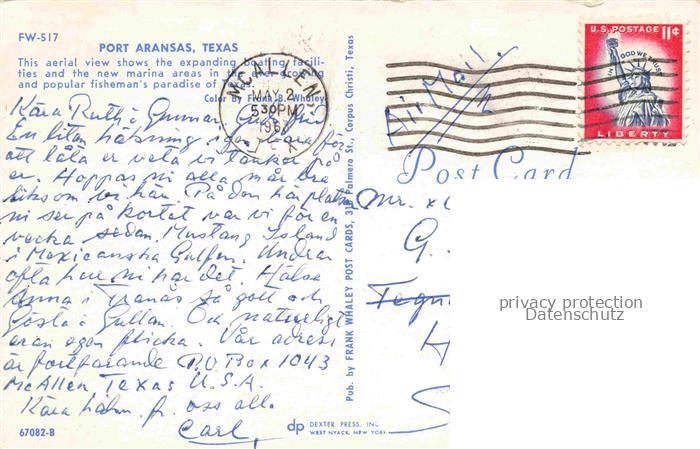 FW-517
PORT ARANSAS, TEXAS
This aerial view shows the expanding boating facili-
ties and the new marina areas in the ever growing
and popular fisheman's paradise of
Color by Frank B. Whaley
McALLEN
MAY 2
5 30 PM
U.S. POSTAGE 11¢
IN GOD WE TRUST
LIBERTY
Air Mail.
Post Card
Kära Ruth & Gunnar
En liten hälsning igen bara för
att låta er veta vi tänker på
er. Hoppas ni alla mår bra
liksom vi här. På den här platsen
ni ser på kortet var vi för en
vecka sedan. Mustang Island
i Mexicanska Gulfen. Undrar
ofta hur ni har det. Hälsa
Anna i Tranås så gott och
Gösta i Gullan. Och naturligt
eran egen flicka. Vår adress
är fortfarande P.O. Box 1043
McAllen Texas U.S.A.
Kära hälsn. fr. oss all.
Carl
Mr. &
G.
H
S
67082-B
Pub. by FRANK WHALEY POST CARDS, Palmero St., Corpus Christi, Texas
dp DEXTER PRESS, INC.
WEST NYACK, NEW YORK
privacy protection
Datenschutz